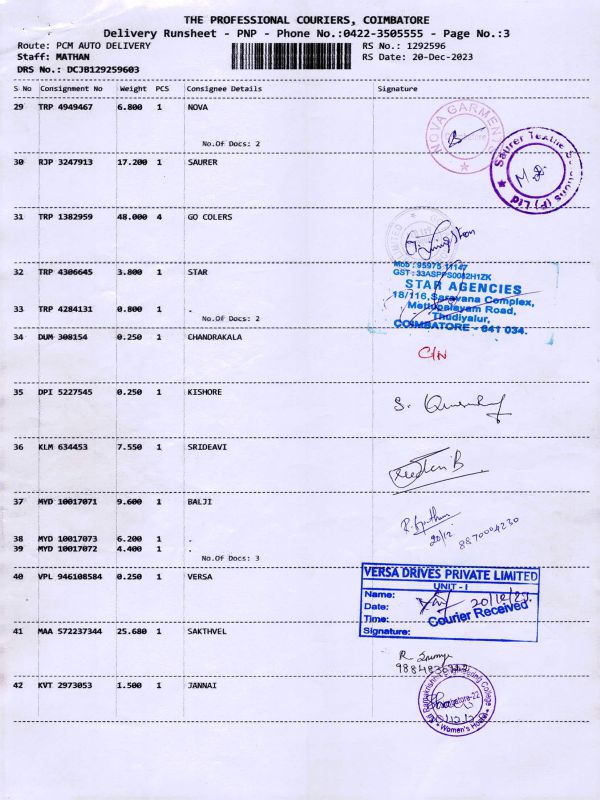 THE PROFESSIONAL COURIERS, COIMBATORE
Delivery Runsheet - PNP - Phone No.:0422-3505555 - Page No.:3
Route: PCM AUTO DELIVERY RS No.: 1292596
Staff: MATHAN RS Date: 20-Dec-2023
DRS No.: DCJB129259603
S No Consignment No Weight PCS Consignee Details Signature
29 TRP 4949467 6.800 1 NOVA
NOVA GARMEN
No.Of Docs: 2
30 RJP 3247913 17.200 1 SAURER
Saurer Textile S (P) Ltd
31 TRP 1382959 48.000 4 GO COLERS
32 TRP 4306645 3.800 1 STAR
Mob : 95975 11147
GST : 33ASPPS0082H1ZK
STAR AGENCIES
18/116, Saravana Complex,
Mettupalayam Road,
Thudiyalur,
COIMBATORE - 641 034.
33 TRP 4284131 0.800 1 .
No.Of Docs: 2
34 DUM 308154 0.250 1 CHANDRAKALA
C/N
35 DPI 5227545 0.250 1 KISHORE
S.
36 KLM 634453 7.550 1 SRIDEAVI
37 MYD 10017071 9.600 1 BALJI
38 MYD 10017073 6.200 1 .
20/12
8870004230
39 MYD 10017072 4.400 1 .
No.Of Docs: 3
40 VPL 946108584 0.250 1 VERSA
VERSA DRIVES PRIVATE LIMITED
UNIT - I
Name:
Date: 20/12/23
Time: Courier Received
Signature:
41 MAA 572237344 25.680 1 SAKTHVEL
R
42 KVT 2973053 1.500 1 JANNAI
Engineering College
Women's Hostel